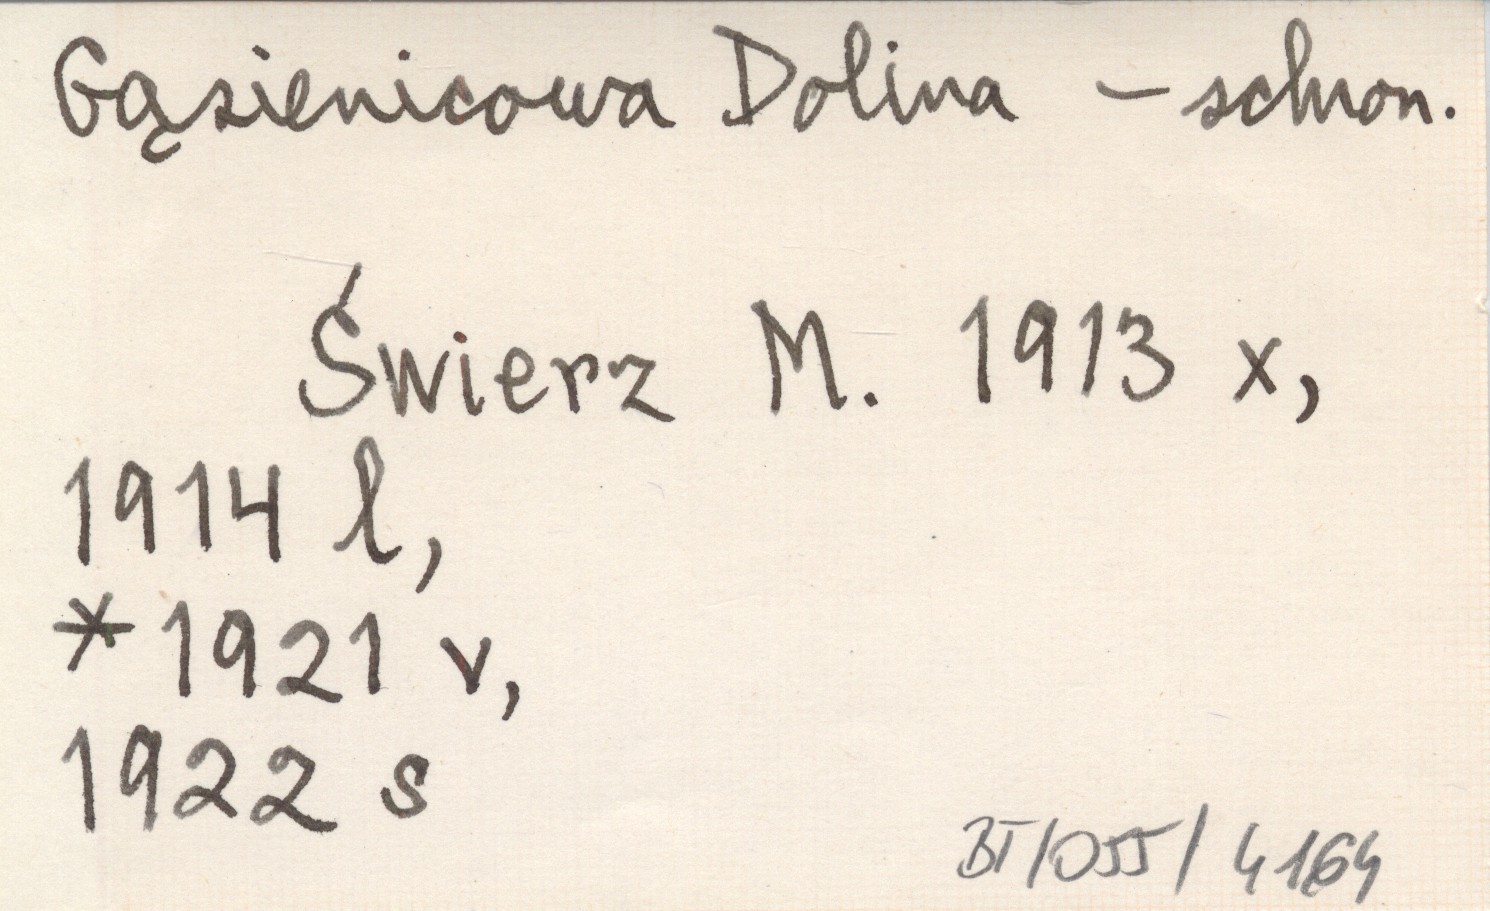 Gąsienicowa Dolina – schron.
Świerz M. 1913 x,
1914 l,
* 1921 v,
1922 s
BT/055/4164